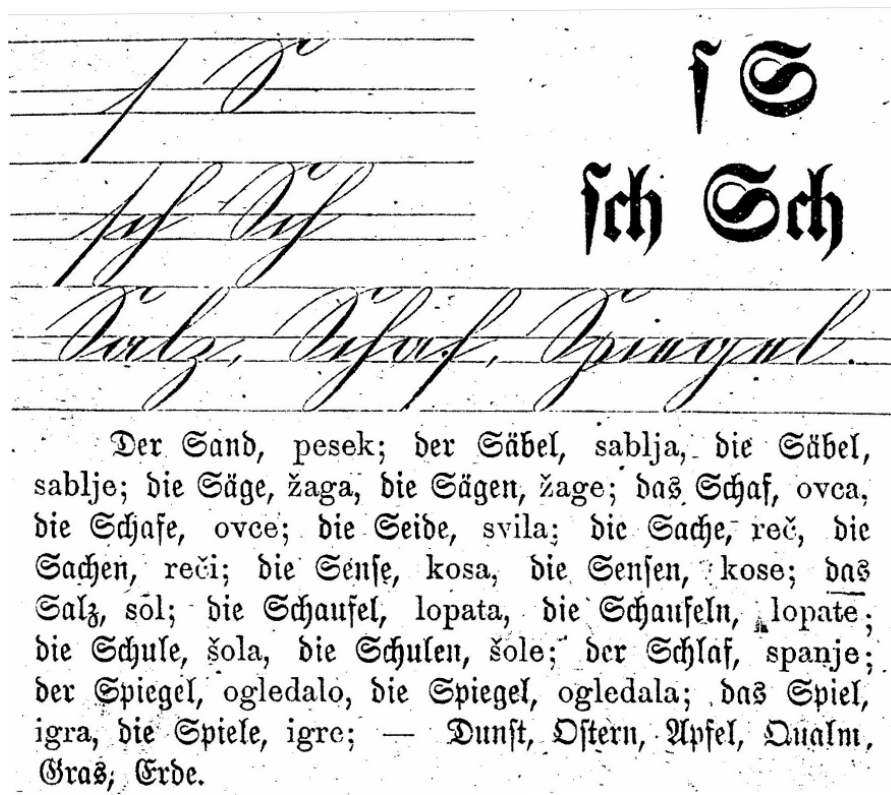 ſ S
ſ S
ſch Sch
ſch Sch
Salz, Schaf, Spiegel.
Der Sand, pesek; der Säbel, sablja, die Säbel,
sablje; die Säge, žaga, die Sägen, žage; das Schaf, ovca,
die Schafe, ovce; die Seide, svila; die Sache, reč, die
Sachen, reči; die Senſe, kosa, die Senſen, kose; das
Salz, sol; die Schaufel, lopata, die Schaufeln, lopate;
die Schule, šola, die Schulen, šole; der Schlaf, spanje;
der Spiegel, ogledalo, die Spiegel, ogledala; das Spiel,
igra, die Spiele, igre; — Dunſt, Oſtern, Apfel, Qualm,
Gras, Erde.